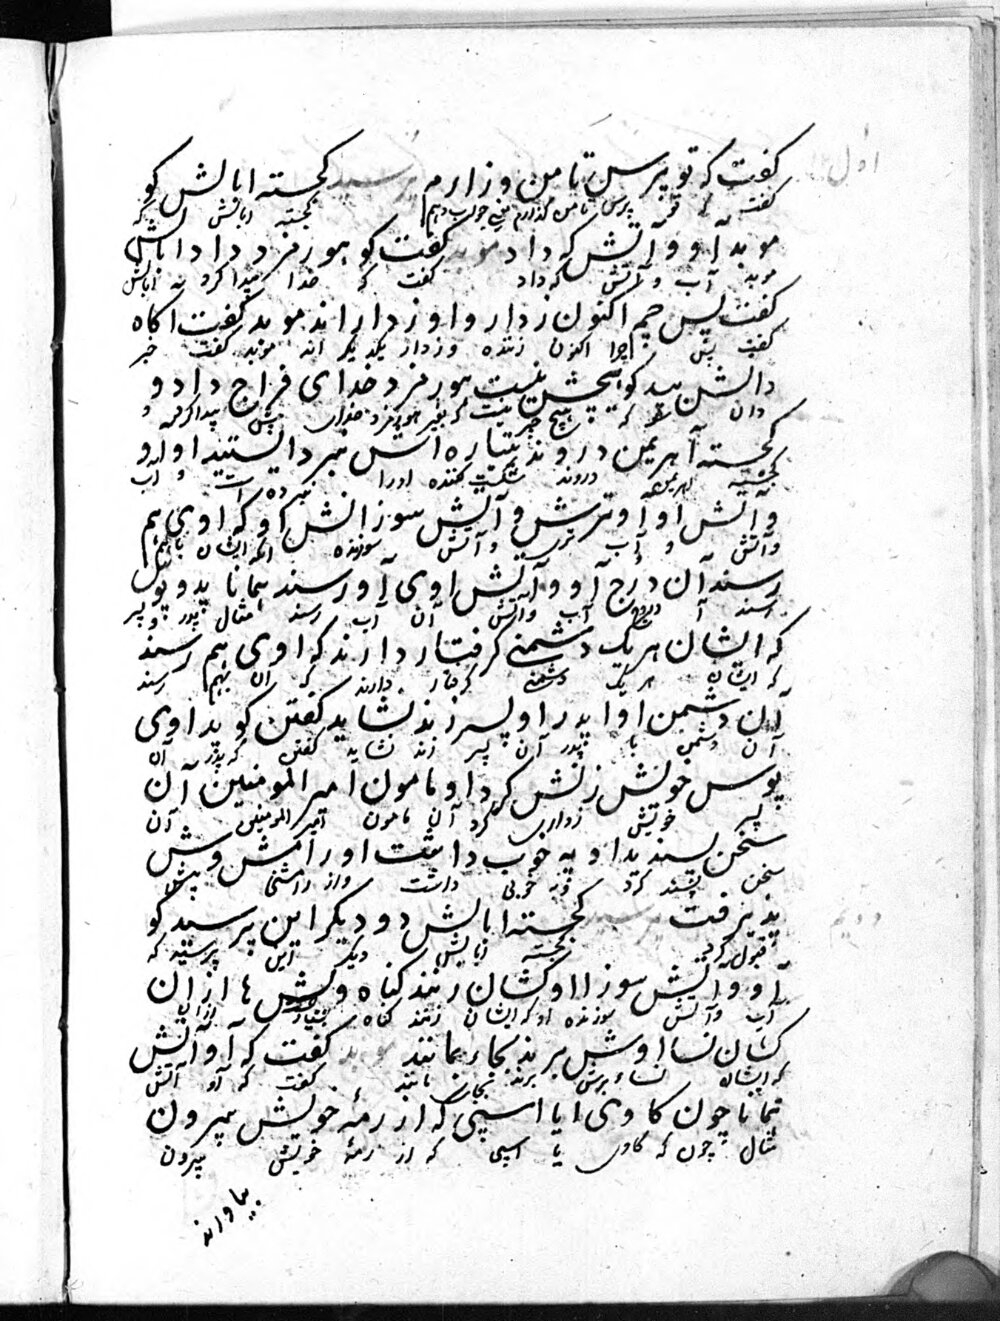 اول
گفت که تو پرس تا من وزارم پرسید گجسته ابالش کو
گفت که تو پرس تا من گذارم یعنی جواب دهم گجسته ابالش که
موبد آو و آتش که داد موبد گفت کو هورمزد داد ابالش
موبد آب و آتش که داد گفت که خدا پیدا کرد ابالش
گفت پس چم اکنون زدار و اوزدار اند موبد گفت اکاه
گفت پس چرا اکنون زننده و زدار یکدیگر اند موبد گفت خبر
دانش بید کو هیچش نیست هورمزد خدای فراج داد و
دان شو که هیچ چیز نیست که بغیر هورمزد خدای پیش پیدا کرد و
گجسته آهریمن دروند پتیاره اش نبر دایستید او آو
گجسته اهریمن دروند شکست کننده اورا نبرده است و آب
و آتش او آو ترش و آتش سوزانش او که اوی هم
و آتش و آب تری و آتش سوزنده که ایشان باهم
رسند آن درج آو و آتش اوی آو رسند همانا پدو پو
رسند آ دروج آب و آتش آن آب رسند مثال پدر و پسر
که ایشان هریک دشمنی گرفتار دارند که اوی هم رسند
که ایشان هریک دشمنی گرفتار دارند که آن بهم رسند
آن دشمن اوا پدر او پسر زند نشاید گفتن کو پد اوی
آن دشمن با پدر آن پسر زند نشاید گفتن که پدر آن
پوس خویش زنش کرد او مامون امیرالمومنین آن
پسر خویش زداری کرد آن مامون امیرالمومنین آن
سخن پسندید او په خوب داشت او رامش ویش
سخن پسند کرد و خوبی داشت و از رامشی
پذیرفت پرسید گجسته ابالش دو دیگر این پرسید کو
قبول کرد گجسته ابالش دیگر این پرسید که
دویم
آو و آتش سوزا اوکشان زنند گناه ویش ها از آن
آب و آتش سوزنده او که ایشان زنند گناه بسیار از آن
کشان نسا اوش برند بجا بمانند موبد گفت که آو آتش
که ایشان نسا برش برند بجا مانند گفت که آو آتش
همانا چون گاوی ایا اسپی که از رمهٔ خویش بیرون
مثال چون که گاوی یا اسپی که از رمهٔ خویش بیرون
بیاورند